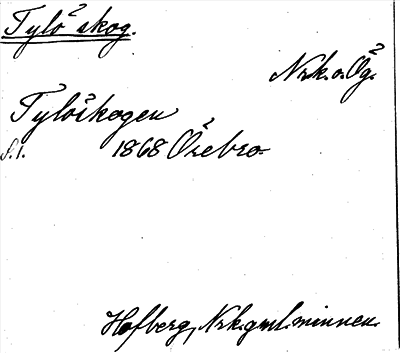 Tylöskog.
Nrk. o. Ög.
Tylöskogen
s. 1. 1868 Örebro
Hofberg, Nrk. gml. minnen.